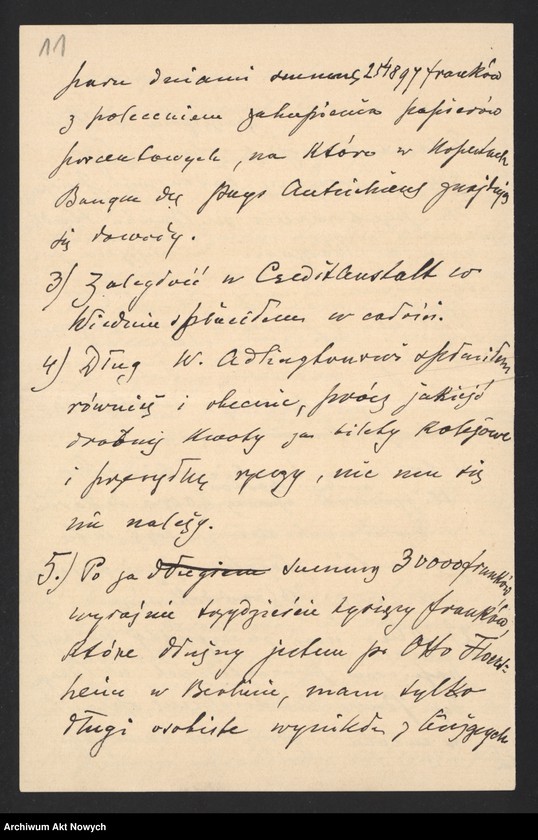 11
paru dniami sumunę 254897 franków
z poleceniem zakupienia papierów
procentowych, na które w Kopertach
Banque des Pays Autrichiens znajdują
się dowody.
3) Zaległość w Creditanstalt w
Wiedniu spłaciłem w całości.
4) Dług W. spłaciłem
również i obecnie, prócz jakiejś
drobnej kwoty za bilety kolejowe
i przesyłkę rzeczy, nic mu się
nie należy.
5.) Po za długiem summy 30000 franków
wyraźnie trzydzieście tysięcy franków,
które dłużny jestem p.
w Berlinie, mam tylko
długi osobiste wynikłe z bieżących
Archiwum Akt Nowych